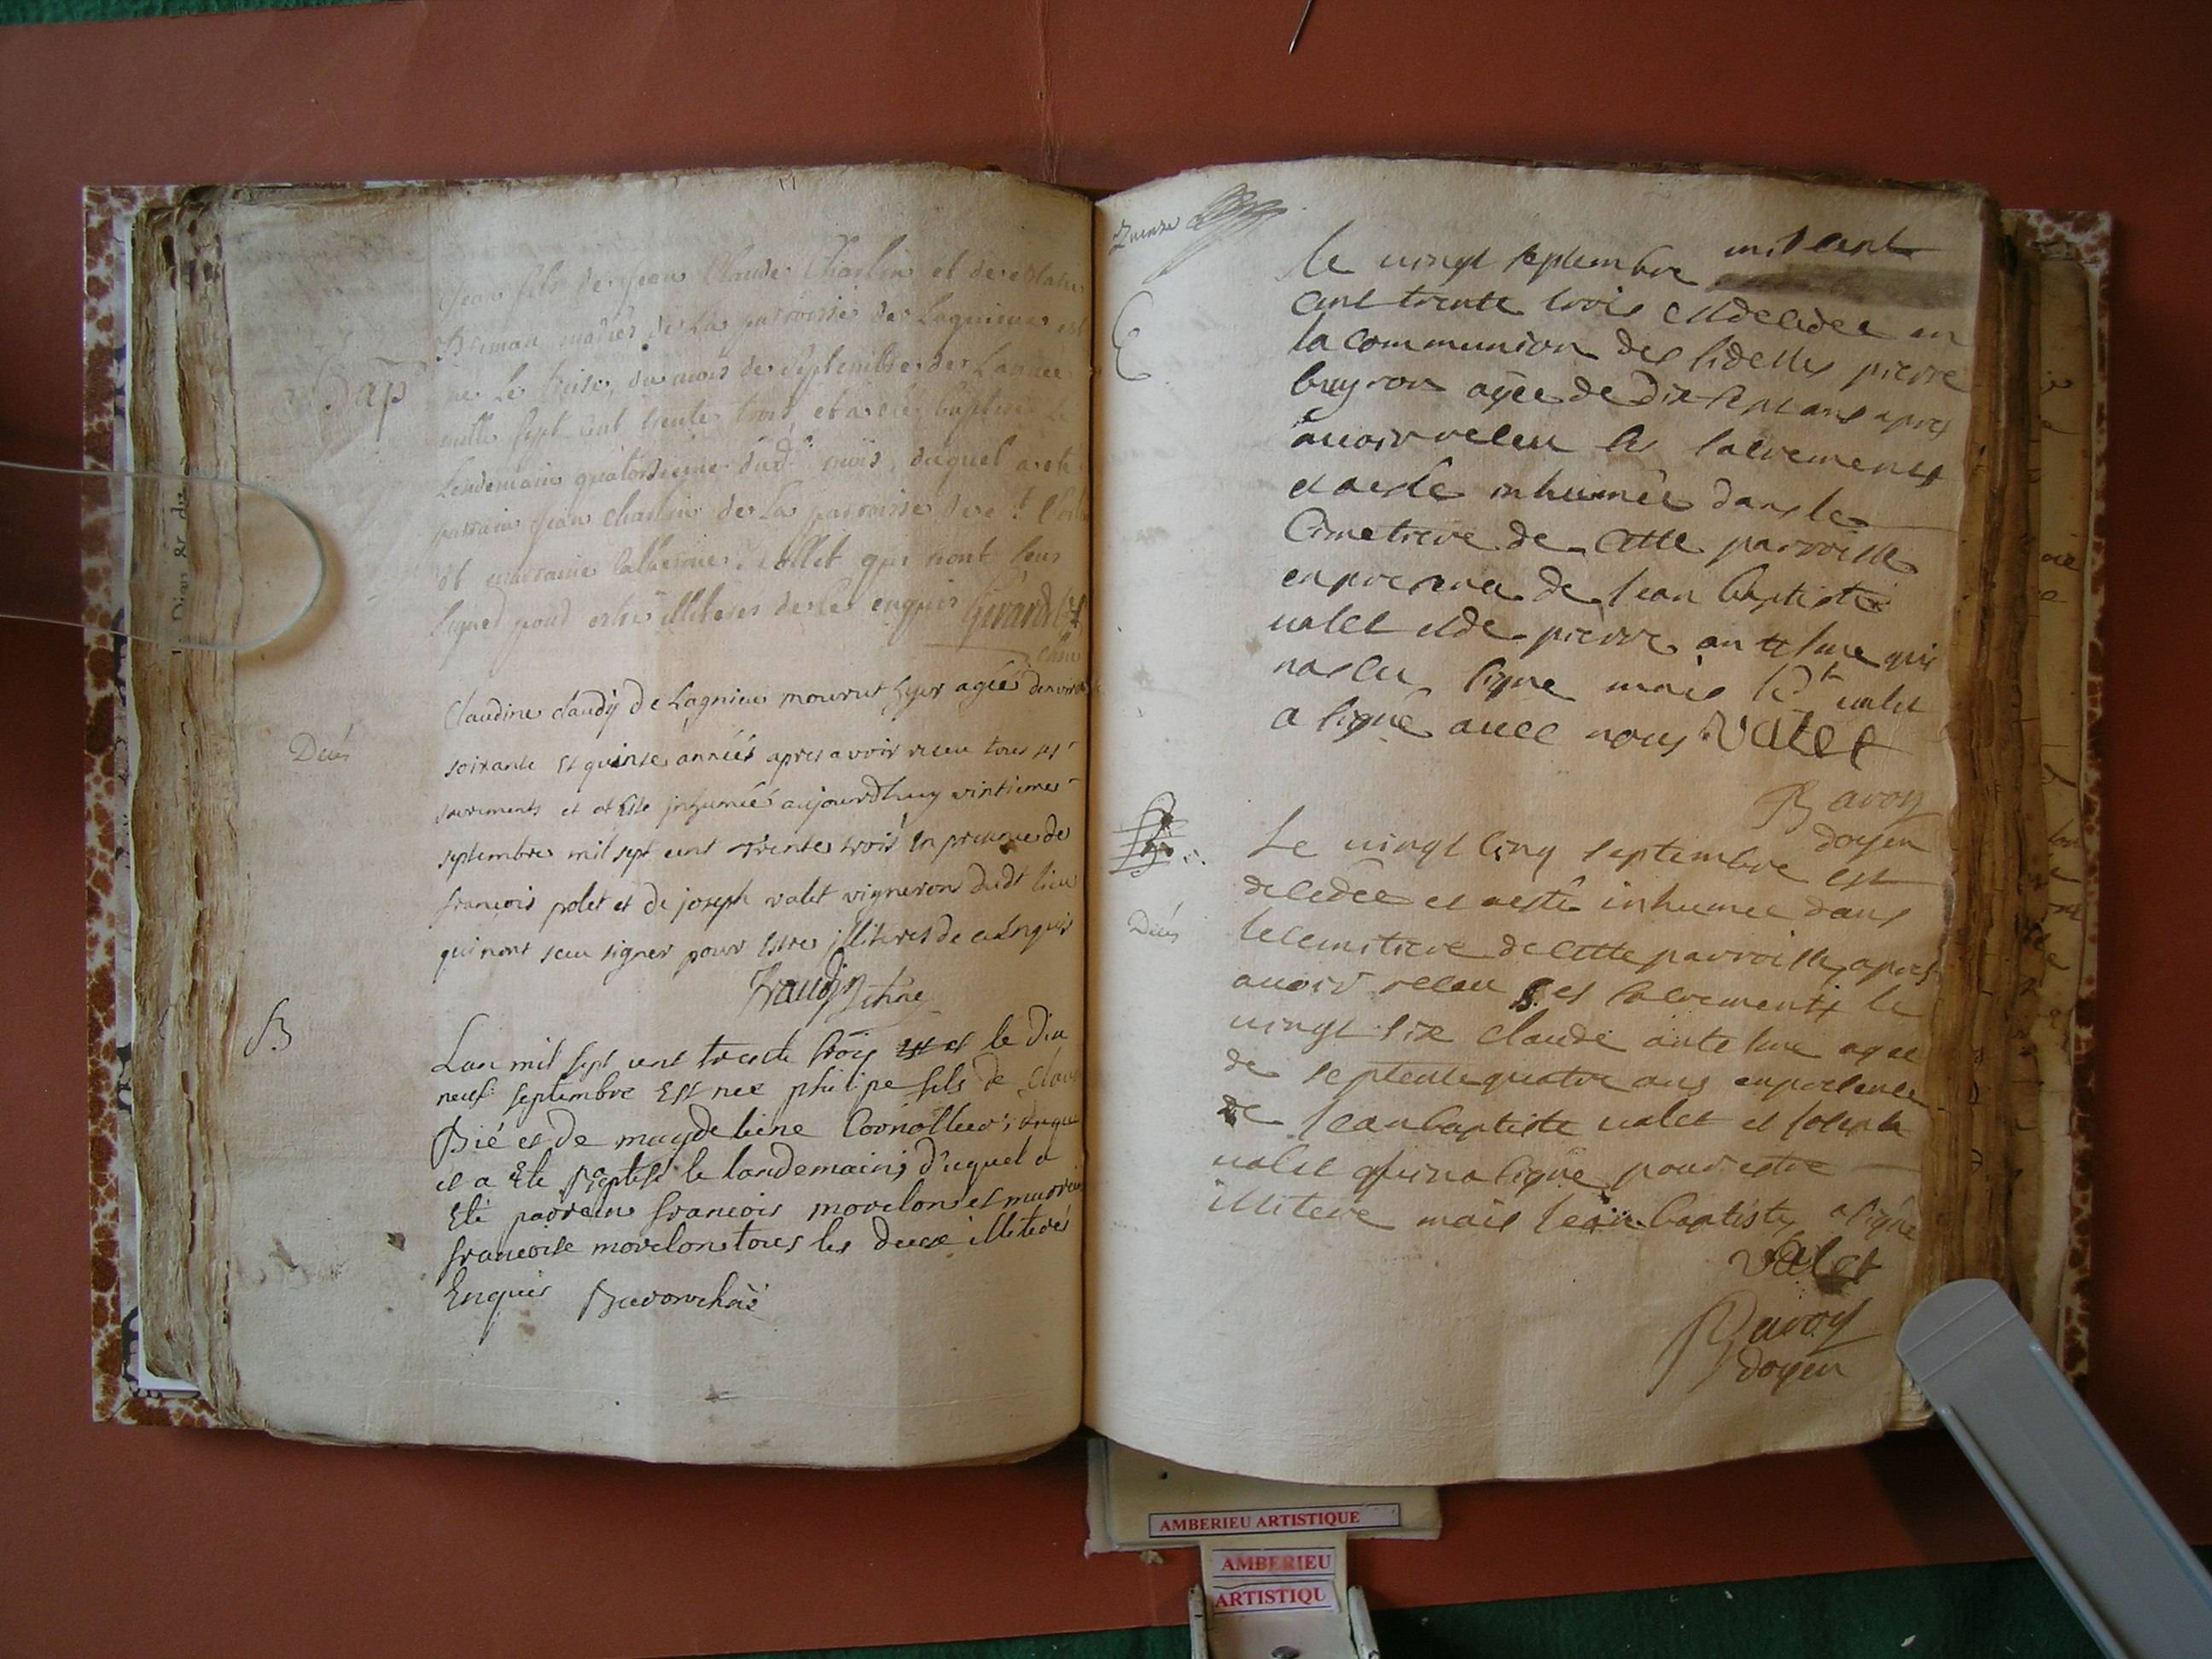 Bap
Jean fils de Jean Claude Charlin et de
Briman mariés de La parroisse de Lagnieu est
ne Le treise du mois de septembre de L'année
mille sept cent trente trois et a ete baptisé Le
Lendemain quatorsieme dud. mois, duquel a ete
parrain Jean charlin de La parroisse de
et marraine Catherine qui nont sceu
signer pour estre illiteres de ce enquis Girardet
Decés
Claudine claudÿ de Lagnieu mourut hyer agée denviron
soixante et quinse années apres avoir receu tous ses
sacrements et at este inhumée aujourdhuy vintieme
septembre mil sept cent trente trois En presence de
francois polet et de joseph valet vigneron dudt lieu
qui nont sceu signer pour Estre illiteres de ce Enquis
B
Lan mil sept cent trente trois le dix
neuf septembre Est nee philipe fils de
Bié et de magdeleine
et a Ete Baptisé le landemain, d'uquel a
Eté parrain francois morelon et marraine
francoise morelon tous les deux illiterés
Enquis
quinze
le vingt septembre mil sept
cent trente trois est decedee en
la communion des fidelles pierre
buyron agee de dix sept ans apres
auoir receu les sacrements
et a esté inhumée dans le
Cimetiere de cette parroisse
en presence de Jean baptiste
ualet et de pierre antelme qui
na sceu signe mais led.t ualet
a signé auec nous Valet
Bavoz
doyen
Decés
Le uingt cinq septembre est
decedée et a esté inhumee dans
le cemitiere de cette parroisse apres
auoir receu ses sacrements le
uingt six claude antelme agee
de septente quatre ans en presence
de Jean baptiste ualet et Joseph
ualet qui na signe pour estre
illitere mais Jean baptiste a signé
Valet
Bavoz
doyen
AMBERIEU ARTISTIQUE
AMBERIEU
ARTISTIQU